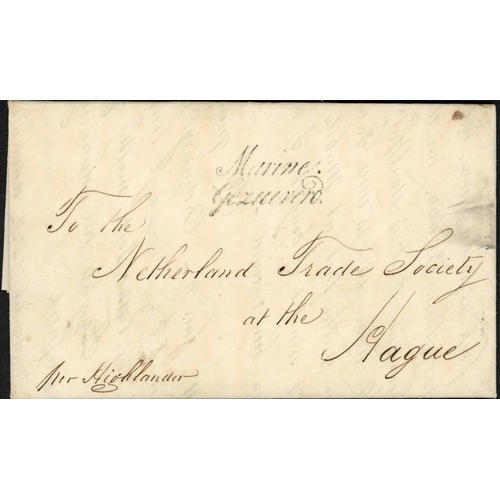 Marine.
Gezuiverd.
To the
Netherland Trade Society
at the
Hague
per Highlander